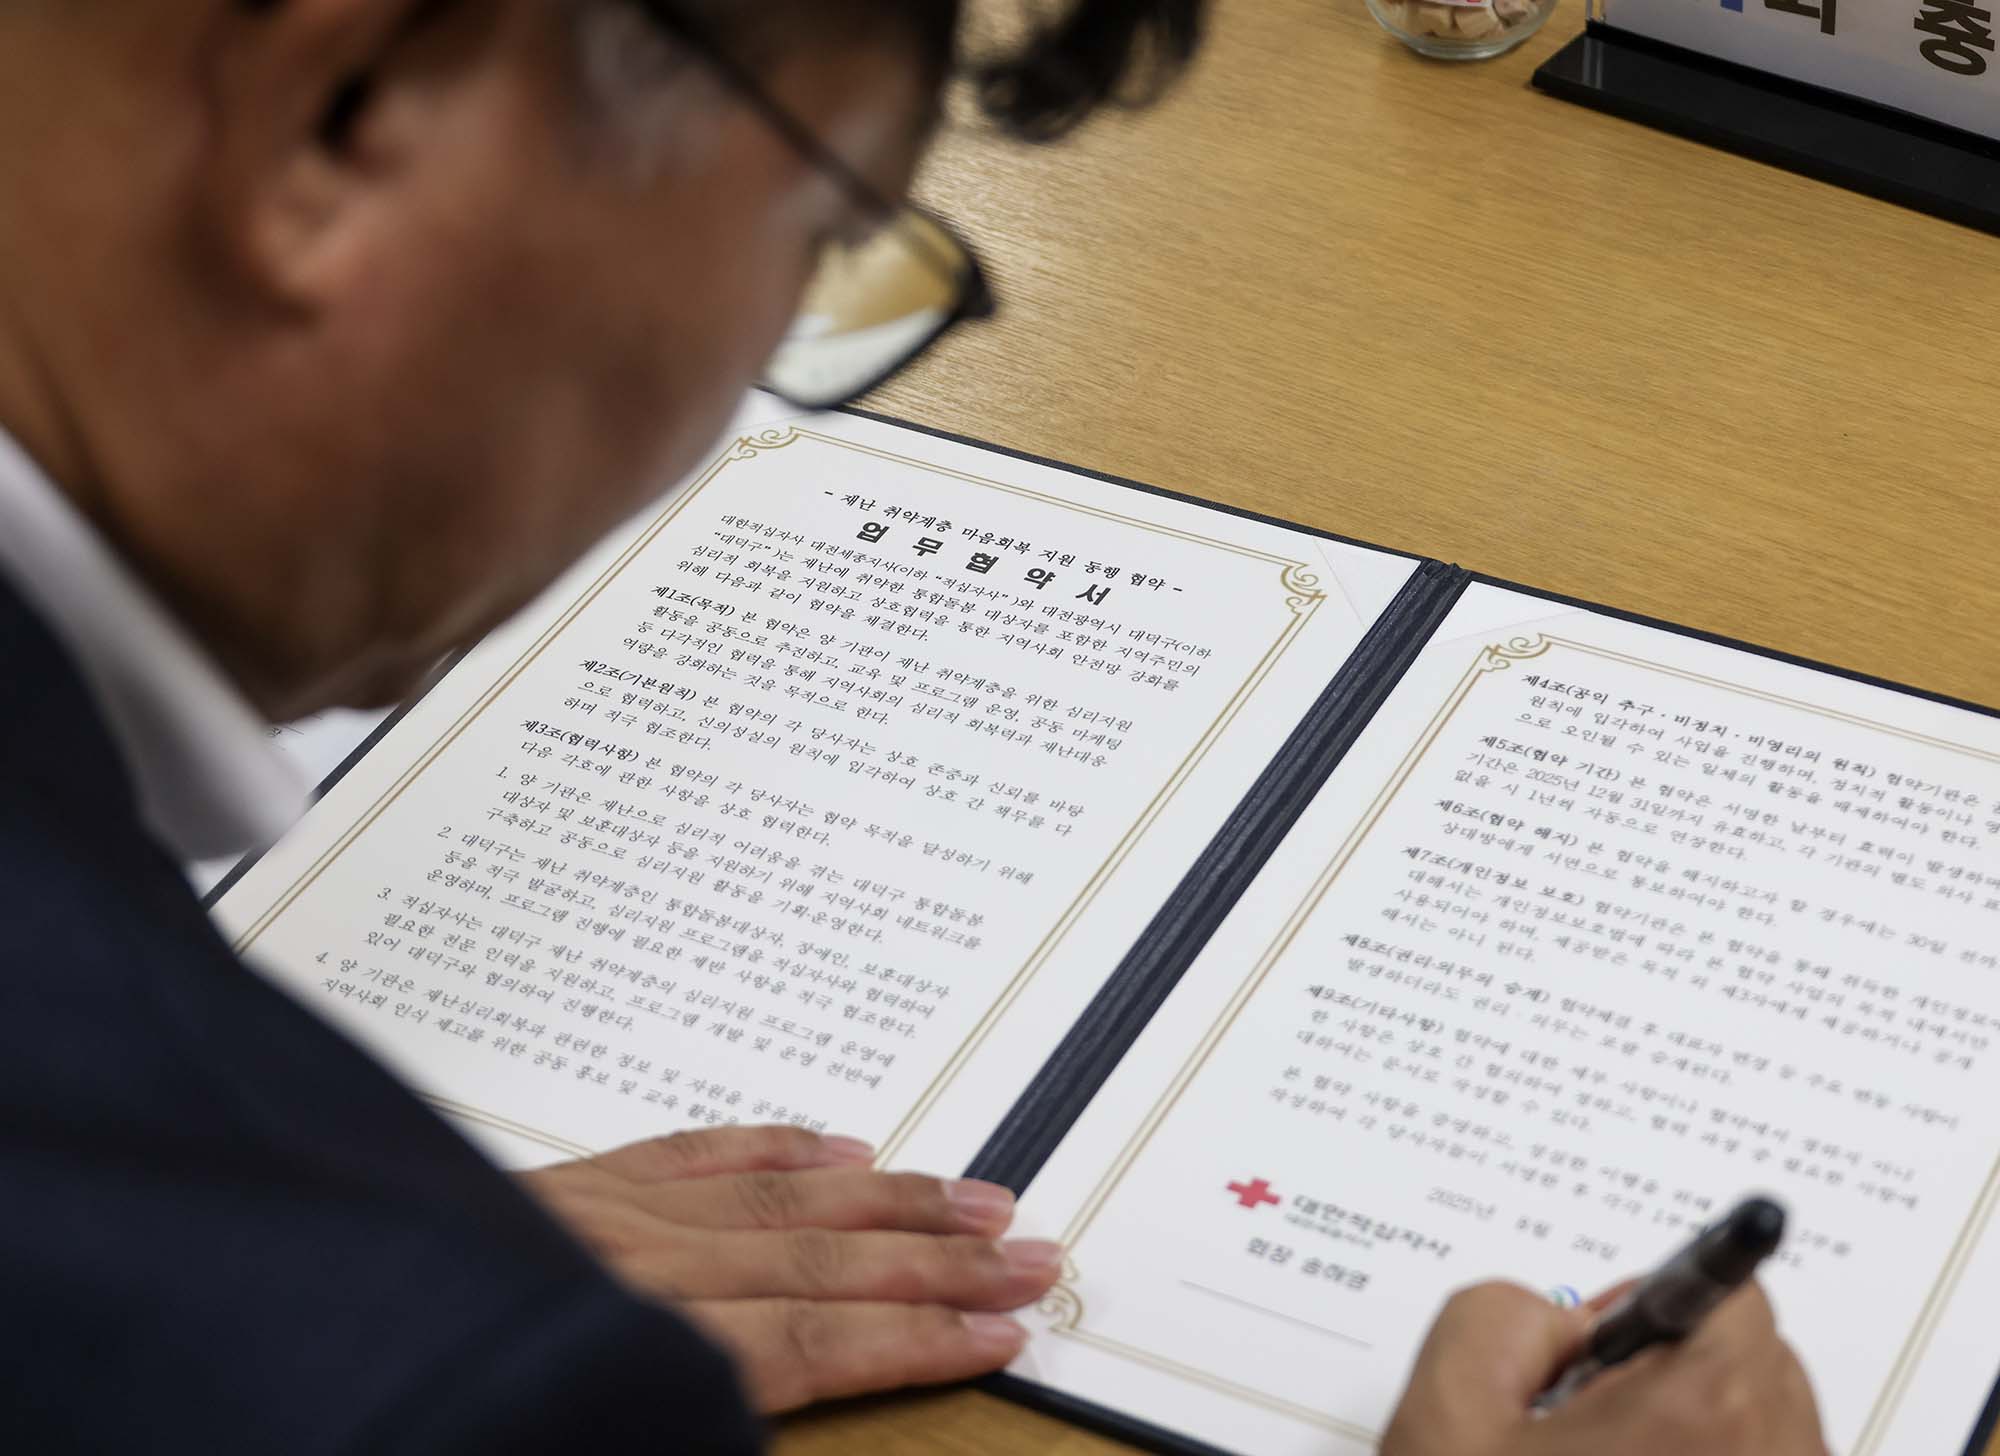 - 재난 취약계층 마음회복 지원 동행 협약 -
업 무 협 약 서
대한적십자사 대전세종지사(이하 “적십자사”)와 대전광역시 대덕구(이하
“대덕구”)는 재난에 취약한 통합돌봄 대상자를 포함한 지역주민의
심리적 회복을 지원하고 상호협력을 통한 지역사회 안전망 강화를
위해 다음과 같이 협약을 체결한다.
제1조(목적) 본 협약은 양 기관이 재난 취약계층을 위한 심리지원
활동을 공동으로 추진하고, 교육 및 프로그램 운영, 공동 마케팅
등 다각적인 협력을 통해 지역사회의 심리적 회복력과 재난대응
역량을 강화하는 것을 목적으로 한다.
제2조(기본원칙) 본 협약의 각 당사자는 상호 존중과 신뢰를 바탕
으로 협력하고, 신의성실의 원칙에 입각하여 상호 간 책무를 다
하며 적극 협조한다.
제3조(협력사항) 본 협약의 각 당사자는 협약 목적을 달성하기 위해
다음 각호에 관한 사항을 상호 협력한다.
1. 양 기관은 재난으로 심리적 어려움을 겪는 대덕구 통합돌봄
대상자 및 보훈대상자 등을 지원하기 위해 지역사회 네트워크를
구축하고 공동으로 심리지원 활동을 기획·운영한다.
2. 대덕구는 재난 취약계층인 통합돌봄대상자, 장애인, 보훈대상자
등을 적극 발굴하고, 심리지원 프로그램을 적십자사와 협력하여
운영하며, 프로그램 진행에 필요한 제반 사항을 적극 협조한다.
3. 적십자사는 대덕구 재난 취약계층의 심리지원 프로그램 운영에
필요한 전문 인력을 지원하고, 프로그램 개발 및 운영 전반에
있어 대덕구와 협의하여 진행한다.
4. 양 기관은 재난심리회복과 관련한 정보 및 자원을 공유하며
지역사회 인식 제고를 위한 공동 홍보 및 교육 활동을
제4조(공익 추구·비정치·비영리의 원칙) 협약기관은
원칙에 입각하여 사업을 진행하며, 정치적 활동이나
으로 오인될 수 있는 일체의 활동을 배제하여야 한다.
제5조(협약 기간) 본 협약은 서명한 날부터 효력이 발생하며
기간은 2025년 12월 31일까지 유효하고, 각 기관의 별도 의사
없을 시 1년씩 자동으로 연장한다.
제6조(협약 해지) 본 협약을 해지하고자 할 경우에는 30일
상대방에게 서면으로 통보하여야 한다.
제7조(개인정보 보호) 협약기관은 본 협약을 통해 취득한 개인정보에
대해서는 개인정보보호법에 따라 본 협약 사업의 목적 내에서만
사용되어야 하며, 제공받은 목적 외 제3자에게 제공하거나 공개
해서는 아니 된다.
제8조(권리·의무의 승계) 협약체결 후 대표자 변경 등 주요 변동 사항이
발생하더라도 권리·의무는 포괄 승계된다.
제9조(기타사항) 협약에 대한 세부 사항이나 협약에서 정하지 아니
한 사항은 상호 간 협의하여 정하고, 협력 과정 중 필요한 사항에
대하여는 문서로 작성할 수 있다.
본 협약 사항을 증명하고, 성실한 이행을 위해
작성하여 각 당사자들이 서명한 후 각각 1부씩
2025년 8월 26일
대한적십자사
대전세종지사
회장 송해영
장
중